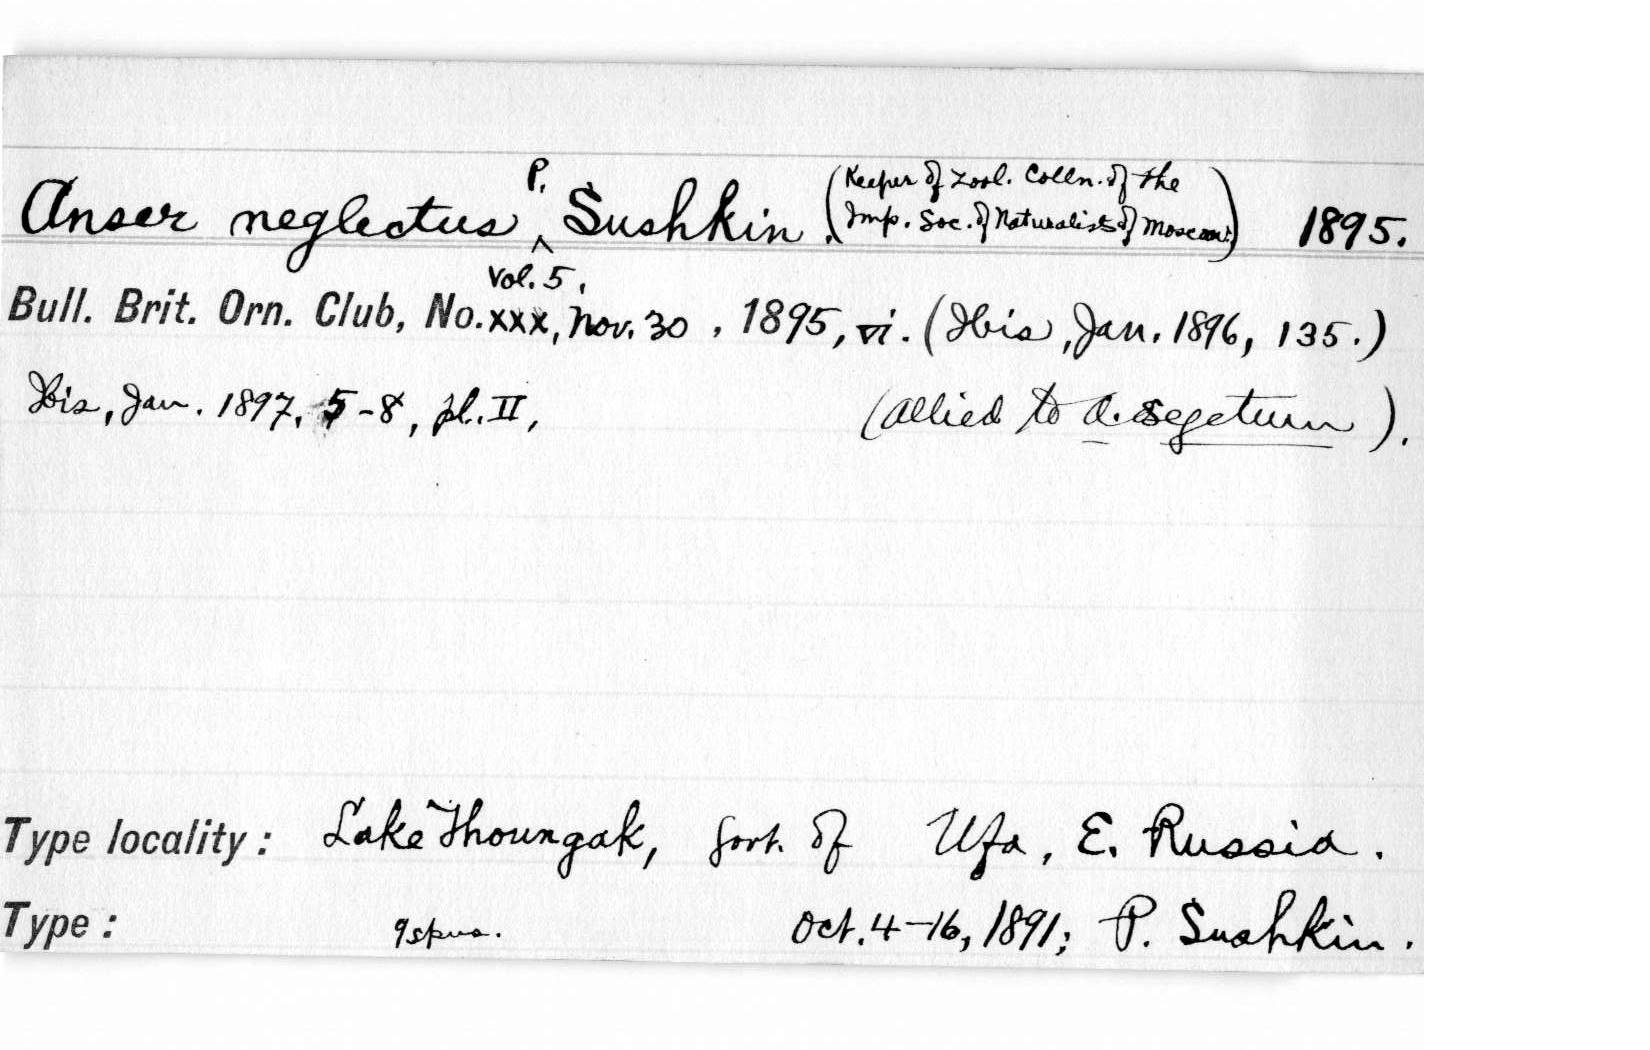 Anser neglectus P. Sushkin. (Keeper of Zool. Colln. of the
Imp. Soc. of Naturalists of Moscow.) 1895.
Bull. Brit. Orn. Club, Vol. 5, No. xxx, Nov. 30, 1895, vi. (Ibis, Jan. 1896, 135.)
Ibis, Jan. 1897, 5-8, pl. II, (Allied to A. segetum).
Type locality: Lake Thoungak, Govt. of Ufa, E. Russia.
Type: 9 spns. Oct. 4-16, 1891; P. Sushkin.